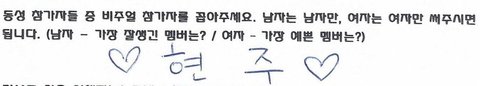 동성 참가자들 중 비주얼 참가자를 꼽아주세요. 남자는 남자만, 여자는 여자만 써주시면
됩니다. (남자 - 가장 잘생긴 멤버는? / 여자 - 가장 예쁜 멤버는?)
♡ 현 주 ♡